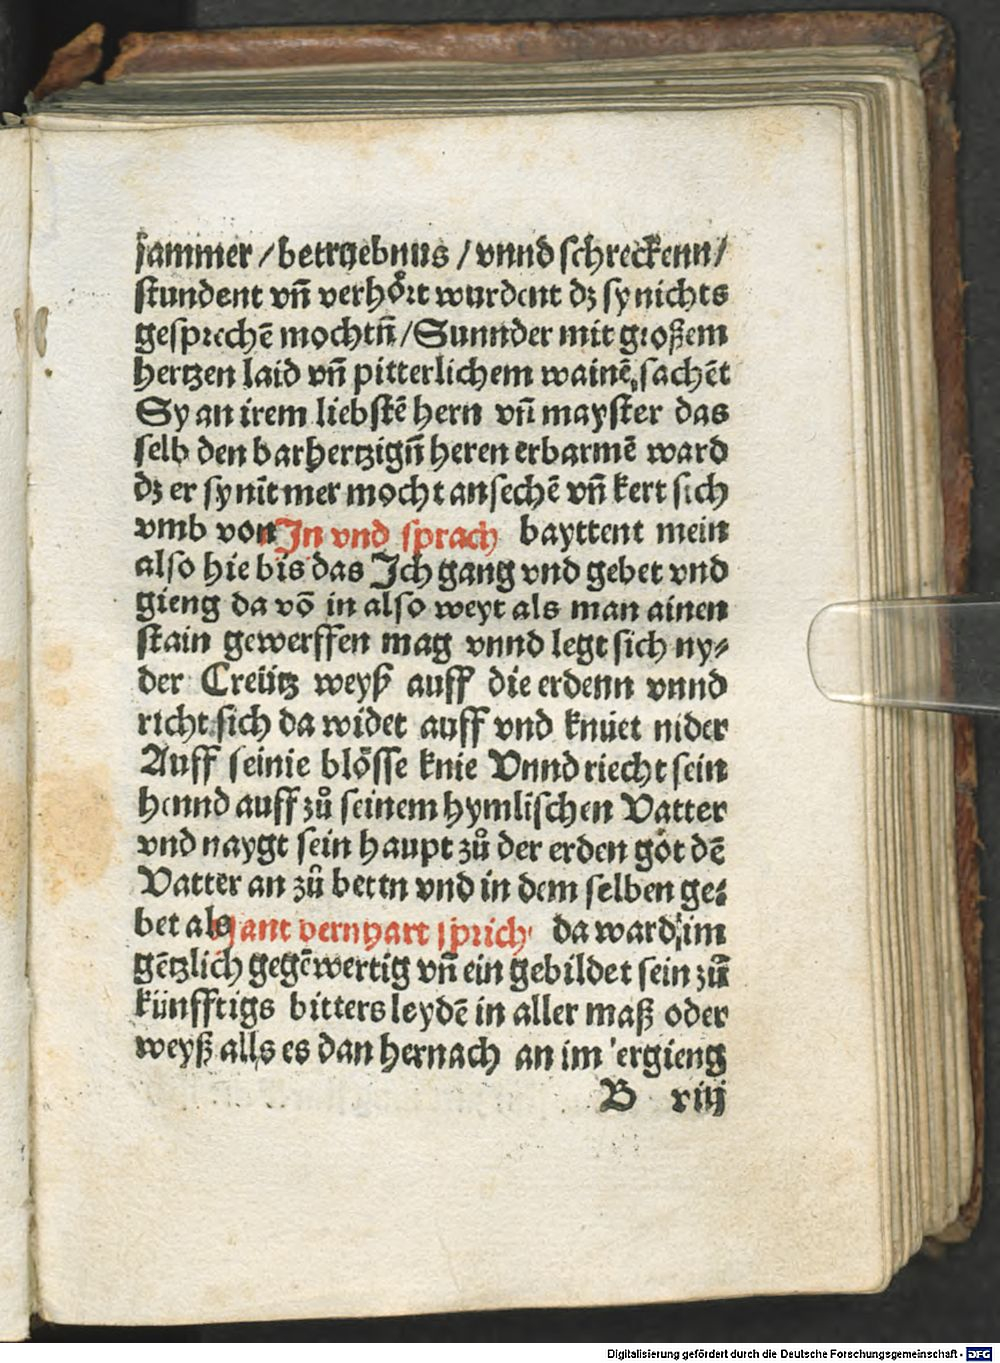 jammer / betruebnus / vnnd schreckenn /
stundent vn̄ verhört wurdent dz sy nichts
gesprechē mochtn̄ / Sunnder mit großem
hertzen laid vn̄ pitterlichem wainē sachēt
Sy an irem liebstē hern vn̄ mayster das
selb den barhertzign̄ heren erbarmē ward
dz er sy nit mer mocht ansechē vn̄ kert sich
vmb von Jn vnd sprach bayttent mein
also hie bis das Jch gang vnd gebet vnd
gieng da vō in also weyt als man ainen
stain gewerffen mag vnnd legt sich ny⸗
der Creütz weyß auff die erdenn vnnd
richt sich da widet auff vnd knüet nider
Auff seinie blösse knie Vnnd riecht sein
hennd auff zů seinem hymlischen Vatter
vnd naygt sein haupt zů der erden got dē
Vatter an zů bettn vnd in dem selben ge⸗
bet als sant bernhart sprich da ward im
gētzlich gegēwertig vn̄ ein gebildet sein zů
künfftigs bitters leydē in aller maß oder
weyß alls es dan hernach an im ergieng
B xiij
Digitalisierung gefördert durch die Deutsche Forschungsgemeinschaft - DFG